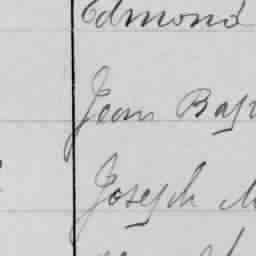 Edmond
Jean Bap
Joseph M